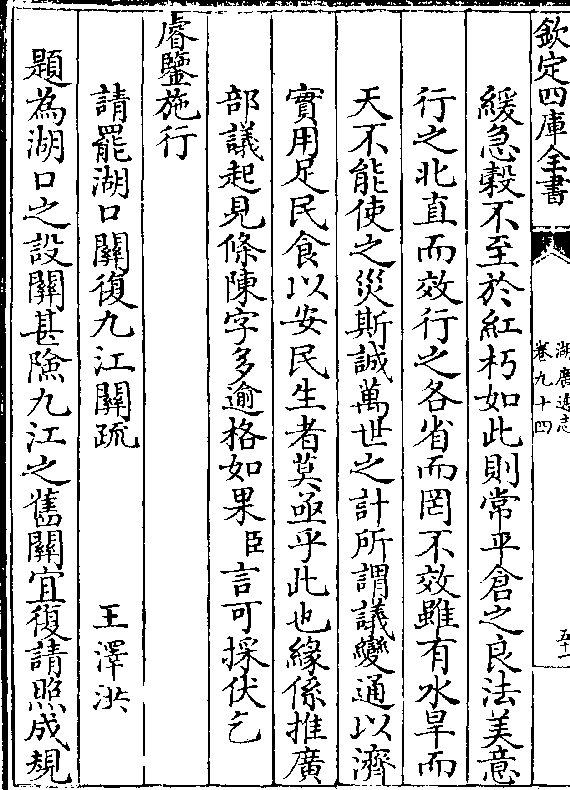 欽定四庫全書
湖廣通志
卷九十四
五十一
緩急穀不至於紅朽如此則常平倉之良法美意
行之北直而效行之各省而罔不效雖有水旱而
天不能使之災斯誠萬世之計所謂議變通以濟
實用足民食以安民生者莫亟乎此也緣係推廣
部議起見條陳字多逾格如果臣言可採伏乞
睿鑒施行
請罷湖口關復九江關疏 王澤洪
題為湖口之設關甚險九江之舊關宜復請照成規